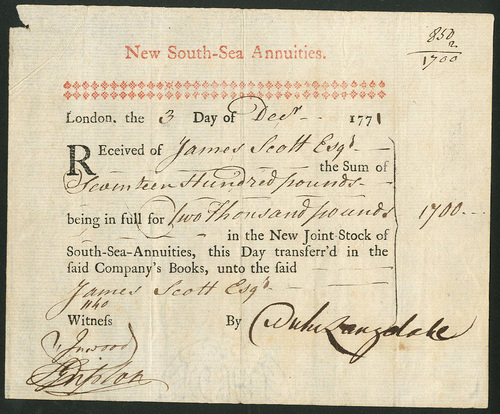 850
2
1700
New South-Sea Annuities.
London, the 3 Day of Decr 1771
REceived of James Scott Esqr
the Sum of
Seventeen Hundred pounds
being in full for Two Thousand pounds 1700
in the New Joint-Stock of
South-Sea-Annuities, this Day transferr'd in the
said Company's Books, unto the said
James Scott Esqr
1140
Witness By Langdale